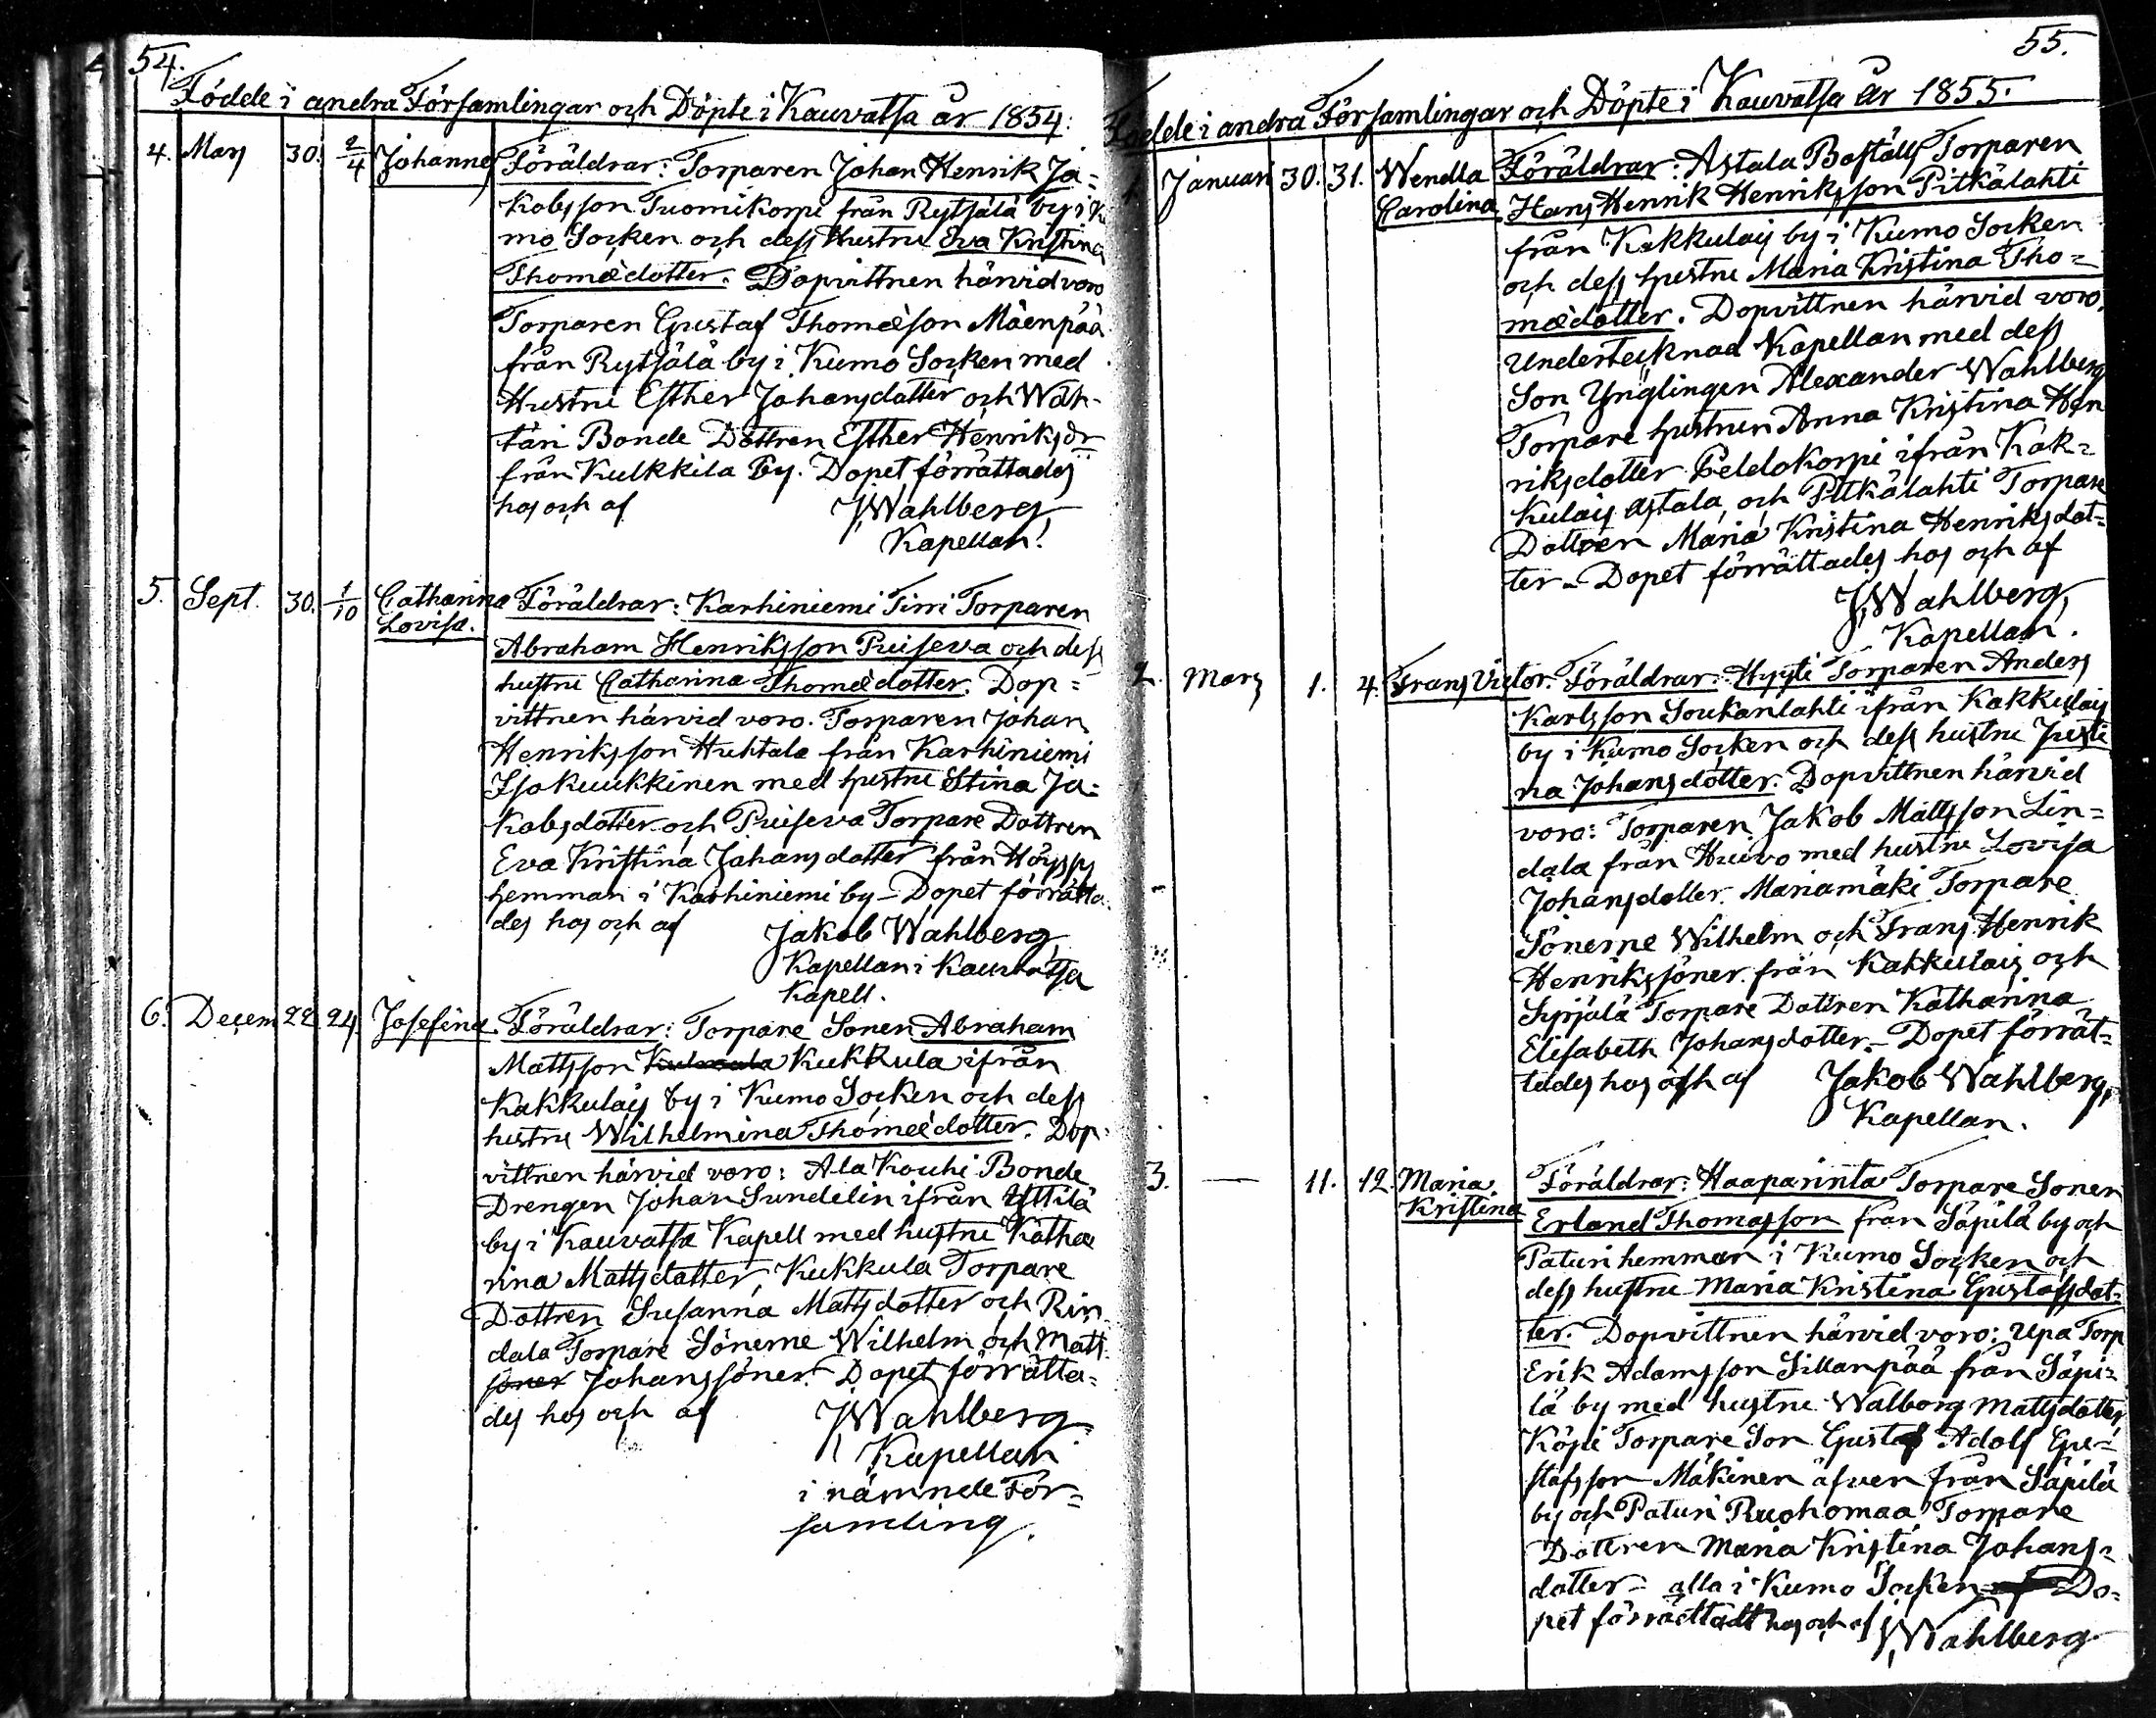 54.
Födde i andra Församlingar och Döpte i Kauvatsa år 1854:
4. Mars 30. 2/4 Johannes Föräldrar: Torparen Johan Henrik Ja=
kobsson Tuomikorpi från Rytsälä by i Ku
mo Socken och dess Hustru Eva Kristina
Thomædotter. Dopvittnen härvid voro
Torparen Gustaf Thomæson Mäenpää
från Rytsälä by i Kumo Socken med
Hustru Esther Johansdotter och Wäh-
täri Bonde Dottren Esther Henriksdr
från Kulkkila By. Dopet förrättades
hos och af JWahlberg,
Kapellan.
5. Sept. 30. 1/10 Catharina Föräldrar: Karhiniemi Tirri Torparen
Lovisa.
Abraham Henriksson Puiseva och dess
hustru Catharina Thomædotter. Dop=
vittnen härvid voro. Torparen Johan
Henriksson Huhtala från Karhiniemi
Isokuukkinen med hustru Stina Ja=
kobsdotter och Puiseva Torpare Dottren
Eva Kristina Johansdotter från
hemman i Karhiniemi by – Dopet förrätta
des hos och af Jakob Wahlberg,
Kapellan i Kauvatsa
Kapell.
6. Decem 22 24. Josefina. Föräldrar: Torpare Sonen Abraham
Mattsson Kukkula ifrån
Kakkulais by i Kumo Socken och dess
hustru Wilhelmina Thomædotter. Dop=
vittnen härvid voro: Ala Kouhi Bonde
Drengen Johan Sundelin ifrån Yttilä
by i Kauvatsa Kapell med hustru Katha
rina Mattsdotter, Kukkula Torpare
Dottren Susanna Mattsdotter och Rin
dala Torpare Sönerne Wilhelm och Matts
söner Johanssöner. Dopet förrätta=
des hos och af JWahlberg
Kapellan
i nämnde För=
samling.
55.
Födde i andra Församlingar och Döpte i Kauvatsa år 1855.
1. Januari 30. 31. Wendla Föräldrar: Astala Boställs Torparen
Carolina Hans Henrik Henriksson Pitkälahti
från Kakkulais by i Kumo Socken
och dess hustru Maria Kristina Tho=
mædotter. Dopvittnen härvid voro.
Undertecknad Kapellan med dess
Son Ynglingen Alexander Wahlberg
Torpare hustrun Anna Kristina Hen
riksdotter Peldokorpi ifrån Kak=
kulais Astala, och Pitkälahti Torpare
Dottren Maria Kristina Henriksdot=
ter – Dopet förrättades hos och af
JWahlberg,
Kapellan.
2. Mars 1. 4. Frans Victor. Föräldrar: Hyyti Torparen Anders
Karlsson Soukanlahti ifrån Kakkulais
by i Kumo Socken och dess hustru Justi
na Johansdotter. Dopvittnen härvid
voro: Torparen Jakob Mattsson Lin=
dala från Huivo med hustru Lovisa
Johansdotter. Mariamäki Torpare
Sönerne Wilhelm och Frans Henrik
Henrikssöner från Kakkulais och
Syrjälä Torpare Dottren Katharina
Elisabeth Johansdotter. – Dopet förrät=
tades hos och af Jakob Wahlberg,
Kapellan.
3. — 11. 12. Maria Föräldrar: Haaparinta Torpare Sonen
Kristina Erland Thomasson från Säpilä by och
Paturi hemman i Kumo Socken och
dess hustru Maria Kristina Gustafsdot=
ter. Dopvittnen härvid voro: Upa Torp
Erik Adamsson Sillanpää från Säpi=
lä by med hustru Walborg Mattsdotter,
Köpi Torpare Son Gustaf Adolf Gu=
stafsson Mäkinen äfven från Säpilä
by och Paturi Ruohomaa Torpare
Dottren Maria Kristina Johans=
dotter – alla i Kumo Socken Do=
pet förrättadt hos och af JWahlberg